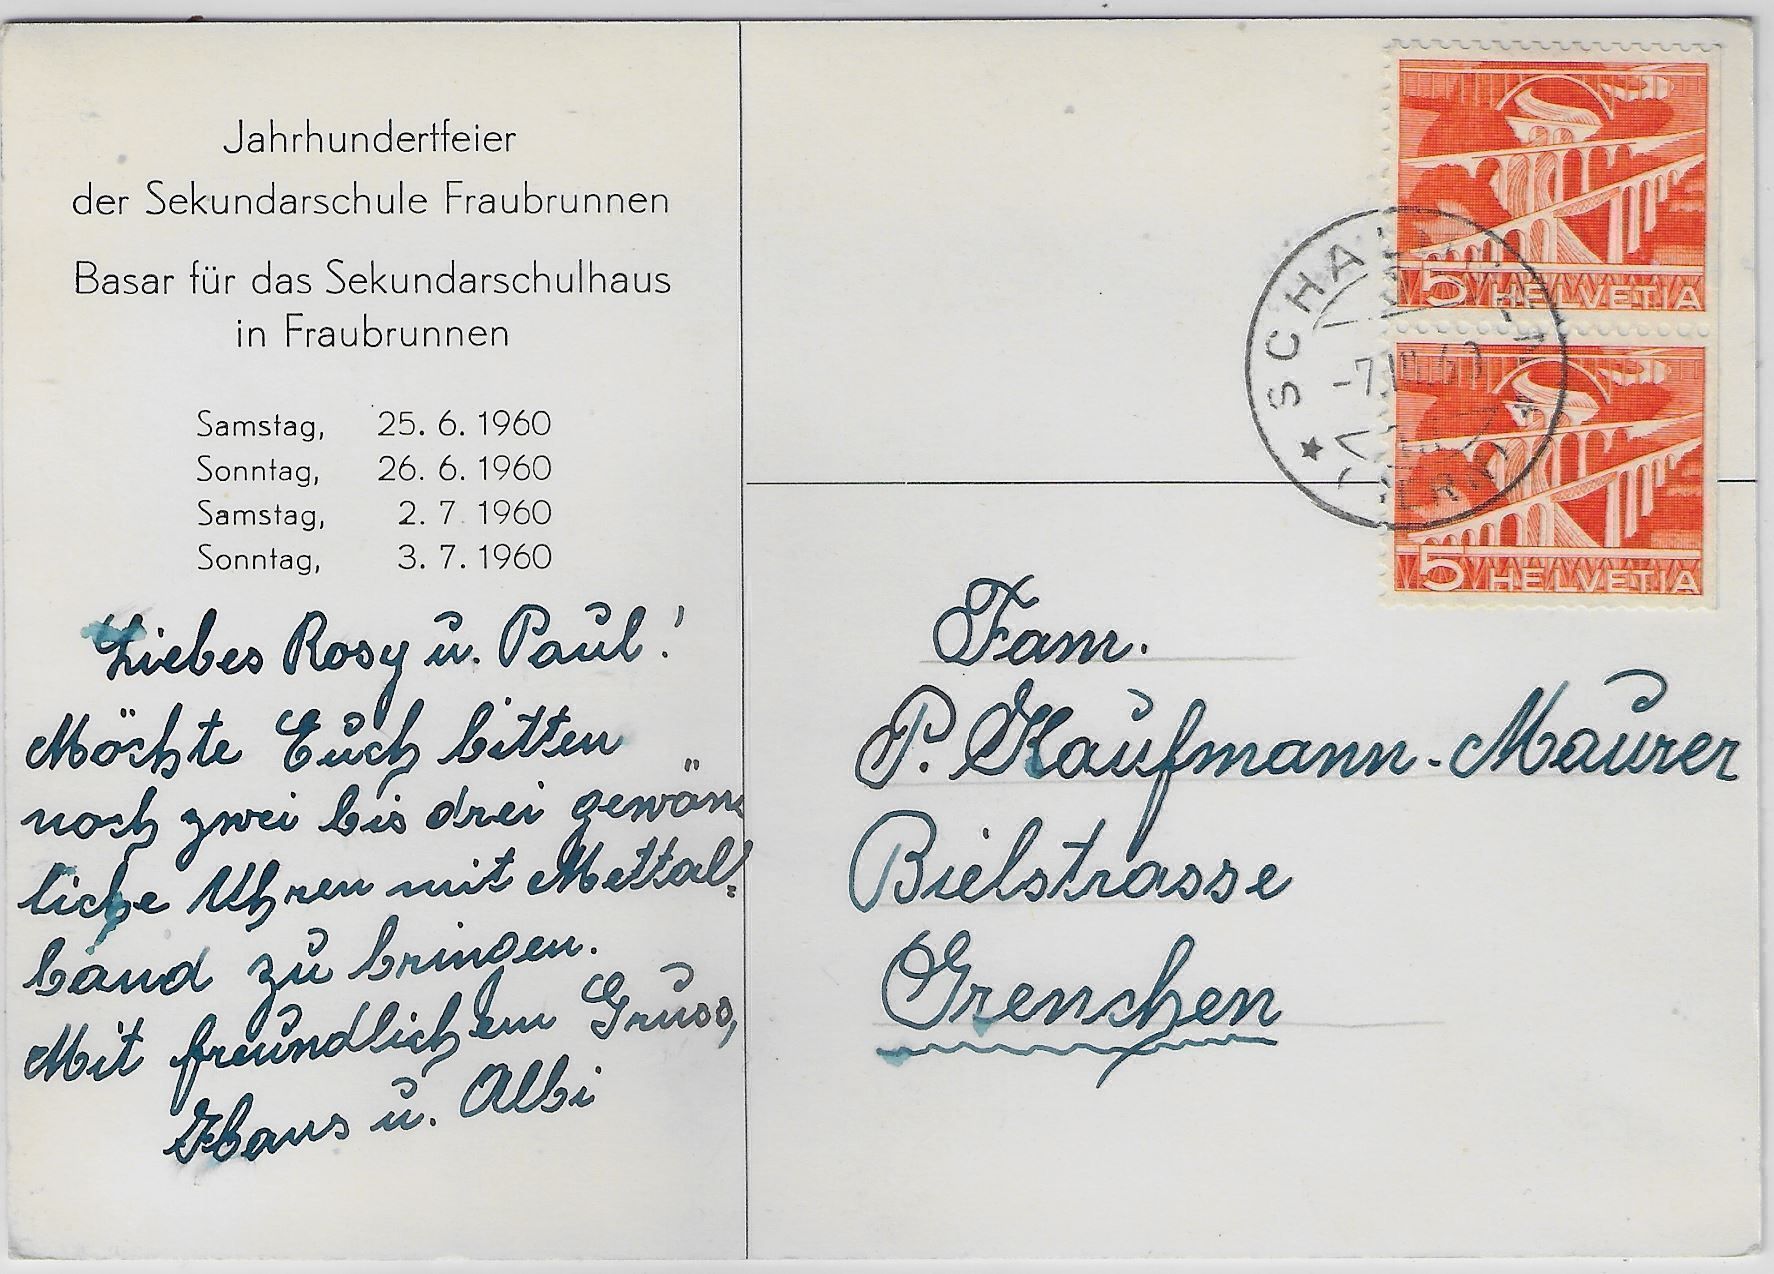 Jahrhundertfeier
der Sekundarschule Fraubrunnen
Basar für das Sekundarschulhaus
in Fraubrunnen
Samstag, 25. 6. 1960
Sonntag, 26. 6. 1960
Samstag, 2. 7. 1960
Sonntag, 3. 7. 1960
Liebes Rosy u. Paul!
Möchte Euch bitten
noch zwei bis drei gewön
liche Uhren mit Mettal=
band zu bringen.
Mit freundlichem Gruss,
Hans u. Albi
5 HELVETIA
5 HELVETIA
Fam.
P. Kaufmann-Maurer
Bielstrasse
Grenchen